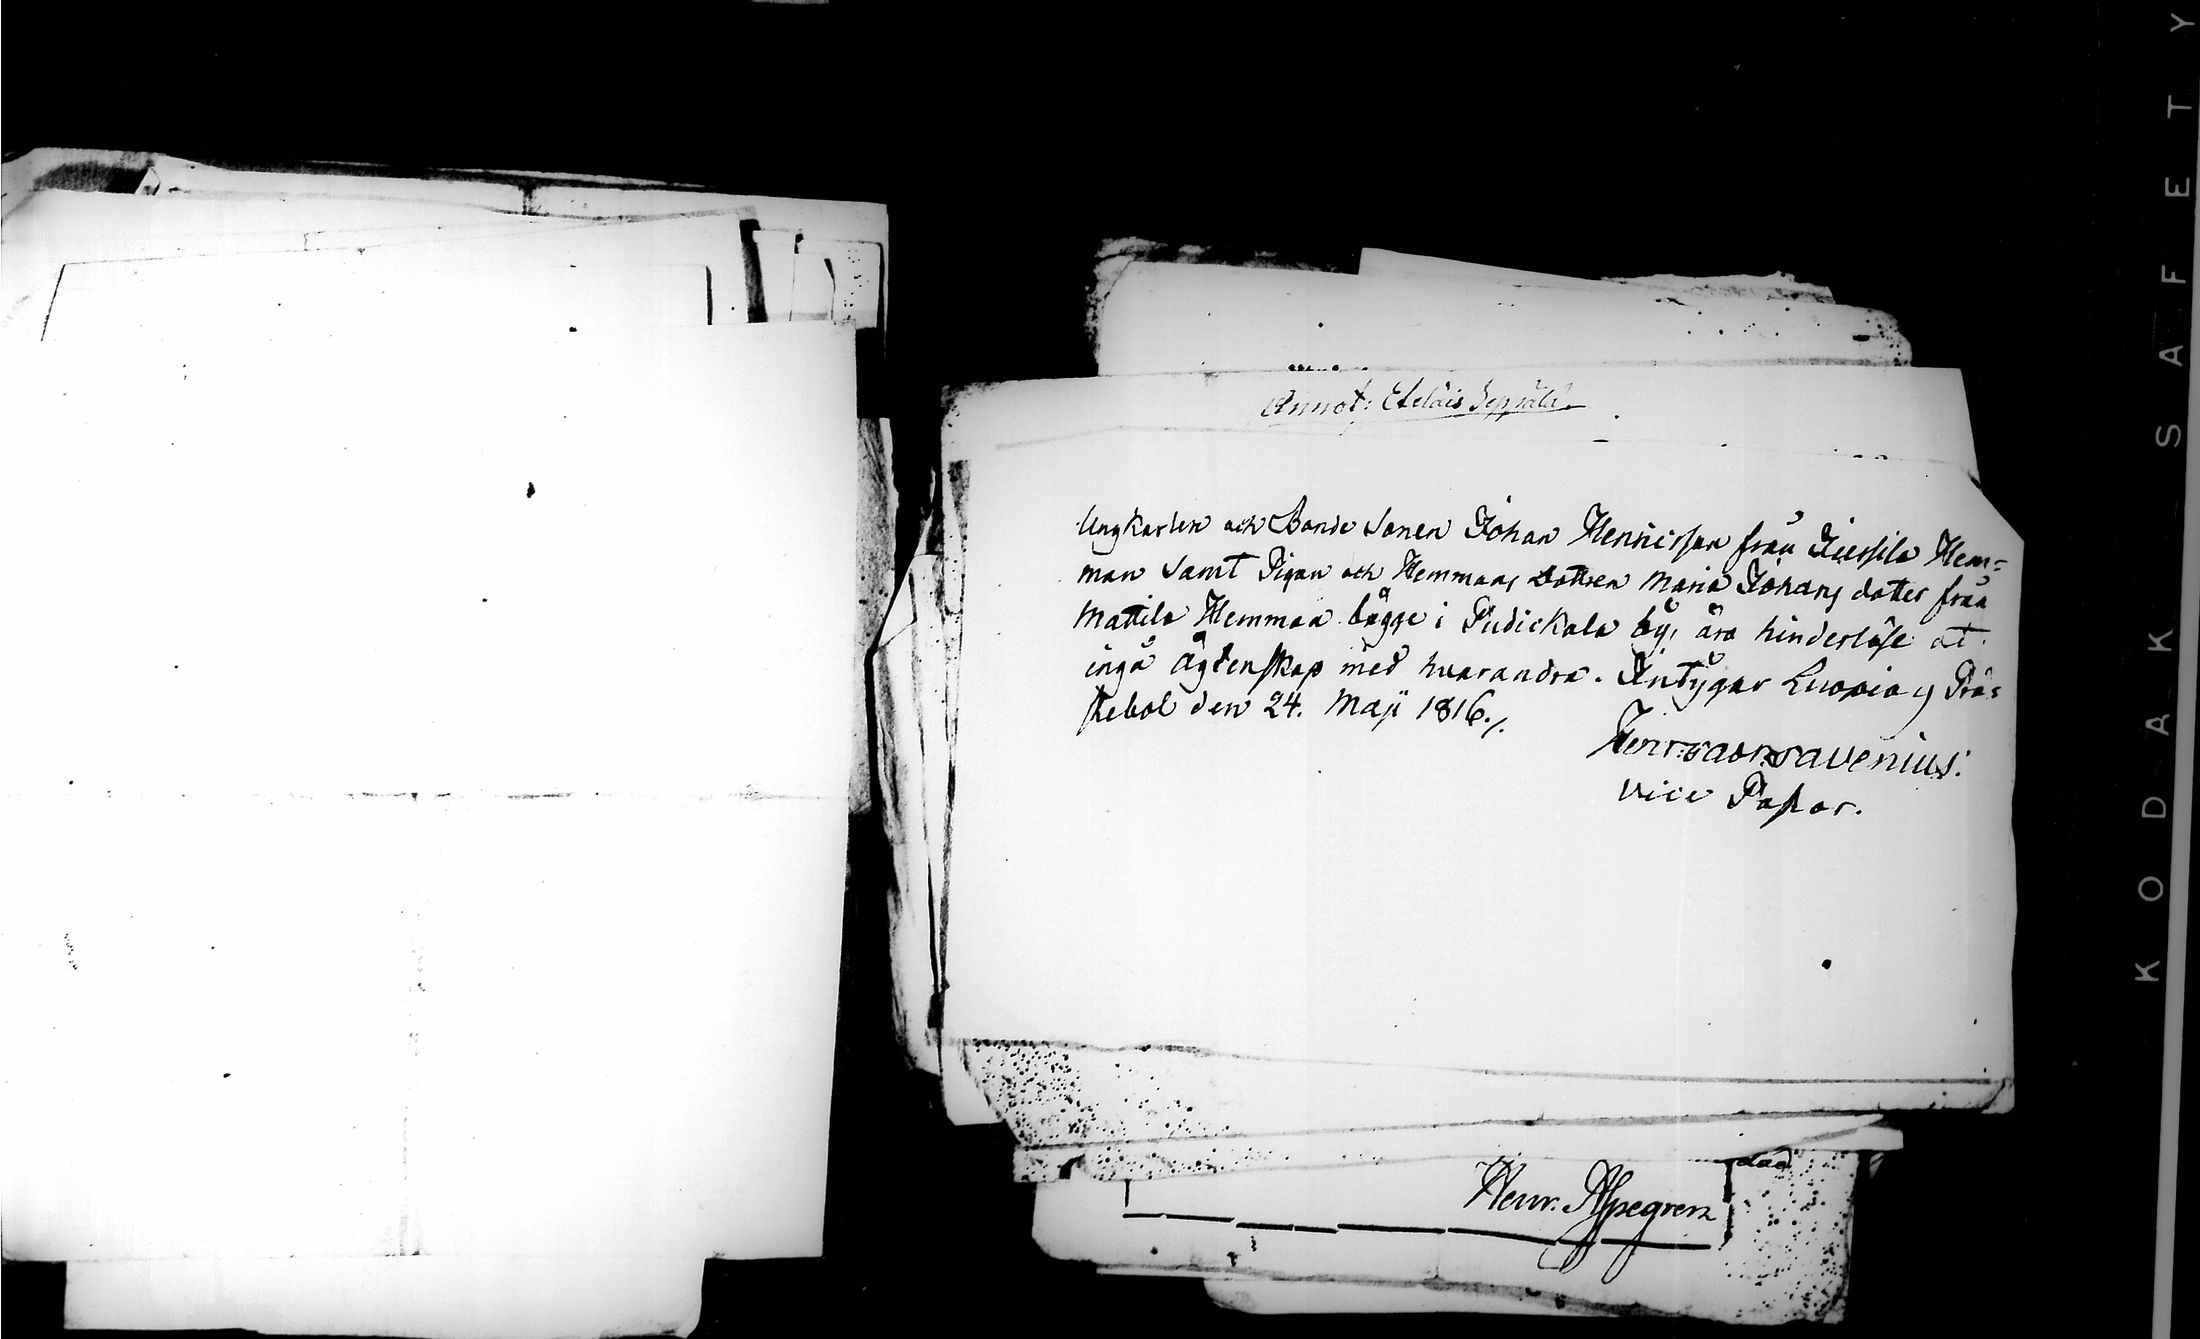 Annot: Eteläis Seppälä
Ungkarlen och Bonde Sonen Johan Henricsson från Jussila Hem=
man samt Pigan och Hemmans dottren Maria Johans dotter från
Mattila Hemman bägge i Pudickala by, äro hinderlöse at
ingå Ägtenskap med hvarandra. Intygar Luopiois Prä=
stebol den 24. Maji 1816./.
Henr:
vice Pastor.
Henr. Alpegren
KODAK SAFETY